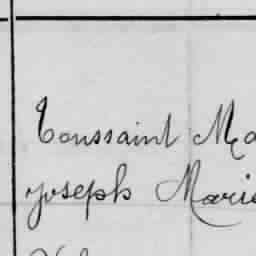 Toussaint Ma
Joseph Marie